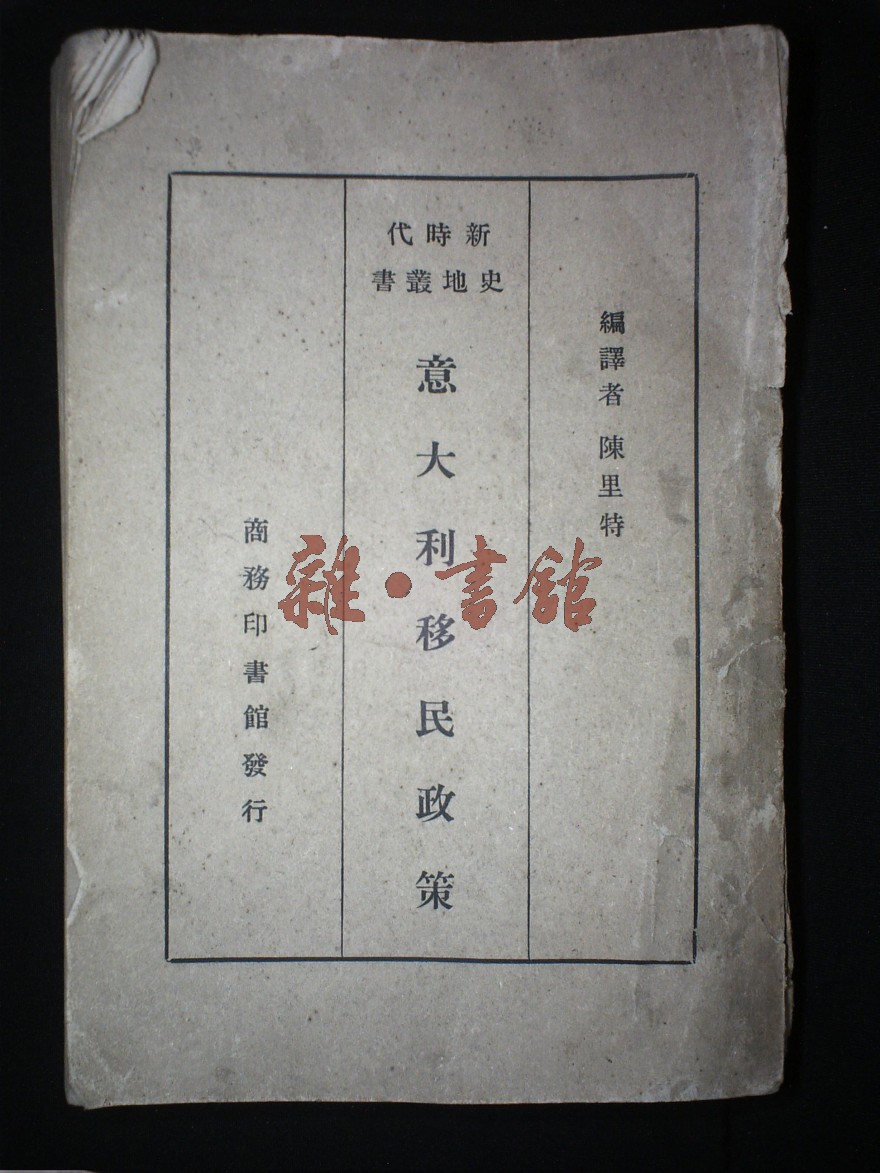 編譯者 陳里特
新時代
史地叢書
意大利移民政策
商務印書館發行
雜·書館